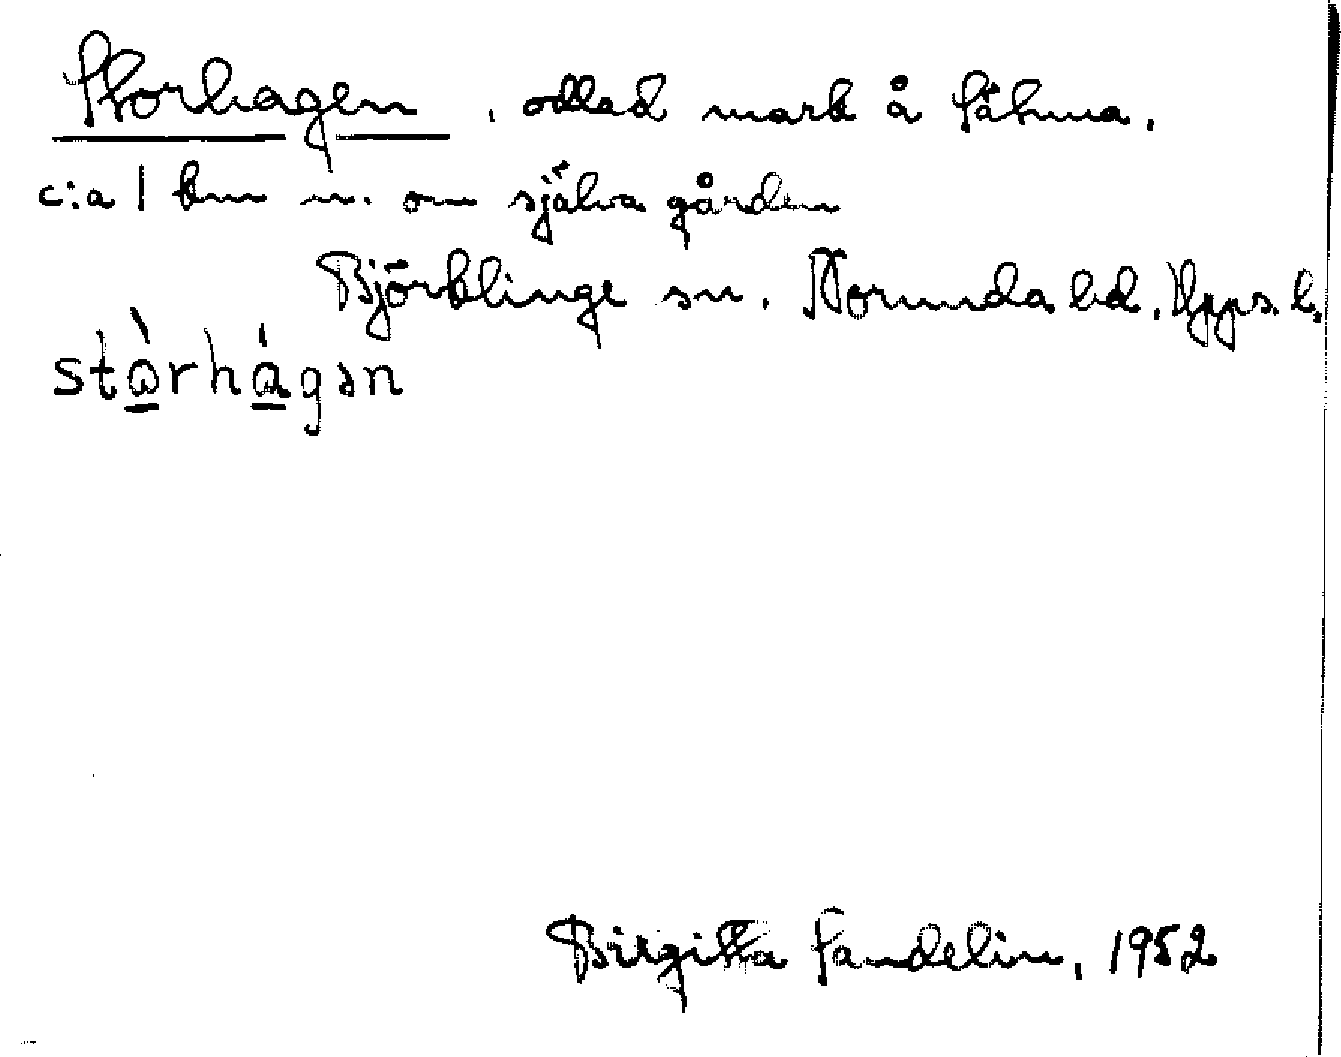 Storhagen, odlad mark å Sähma.
c:a 1 km n. om själva gården
Björklinge sn. Norunda hd. Upps. l.
stòrhágən
Birgitta Sandelin, 1952